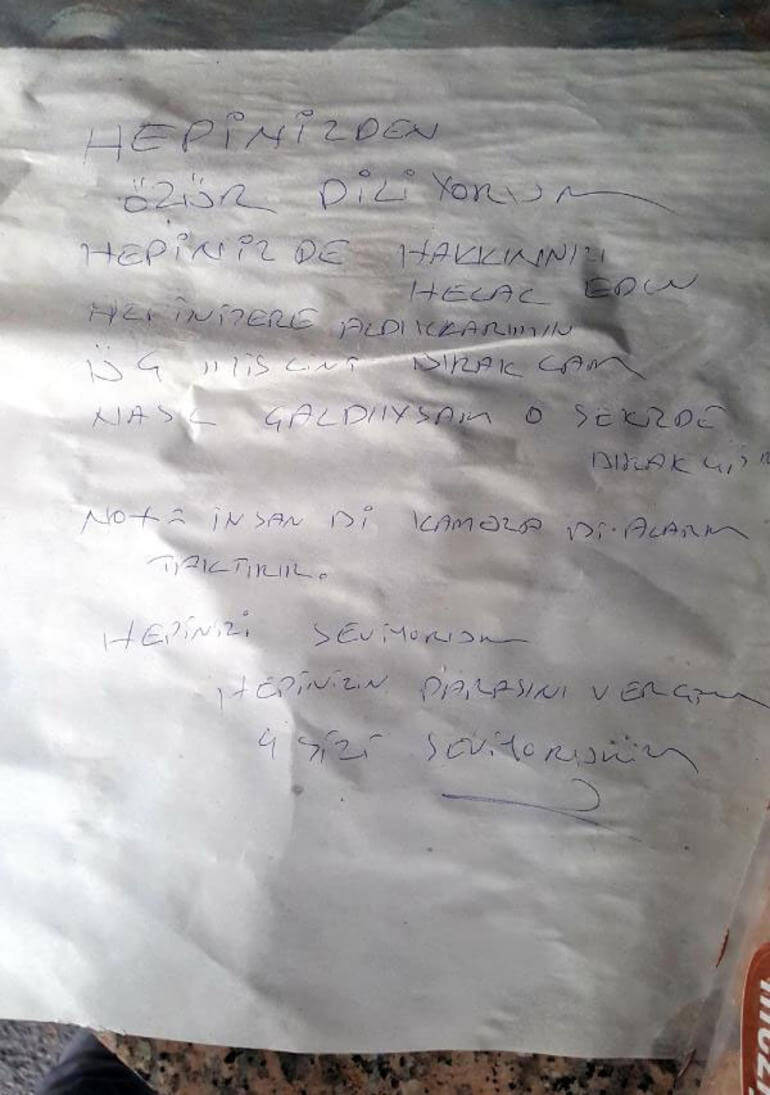 HEPİNİZDEN
ÖZÜR DİLİYORUM
HEPİNİZDE HAKKINNIZI
HELAL EDIN
HEPİNİZERE ALDIKLARIMIN
ÜÇ MİSLİNİ BIRAKCAM
NASL ÇALDIIYSAM O SEKİLDE
BIRAKCAM
NOT = İNSAN Bİ KAMERA Bİ ALARM
TAKTIRIR.
HEPİNİZİ SEVİYORUM
HEPİNİZİN PARASINI VERCEM
SİZİ SEVİYORUUM